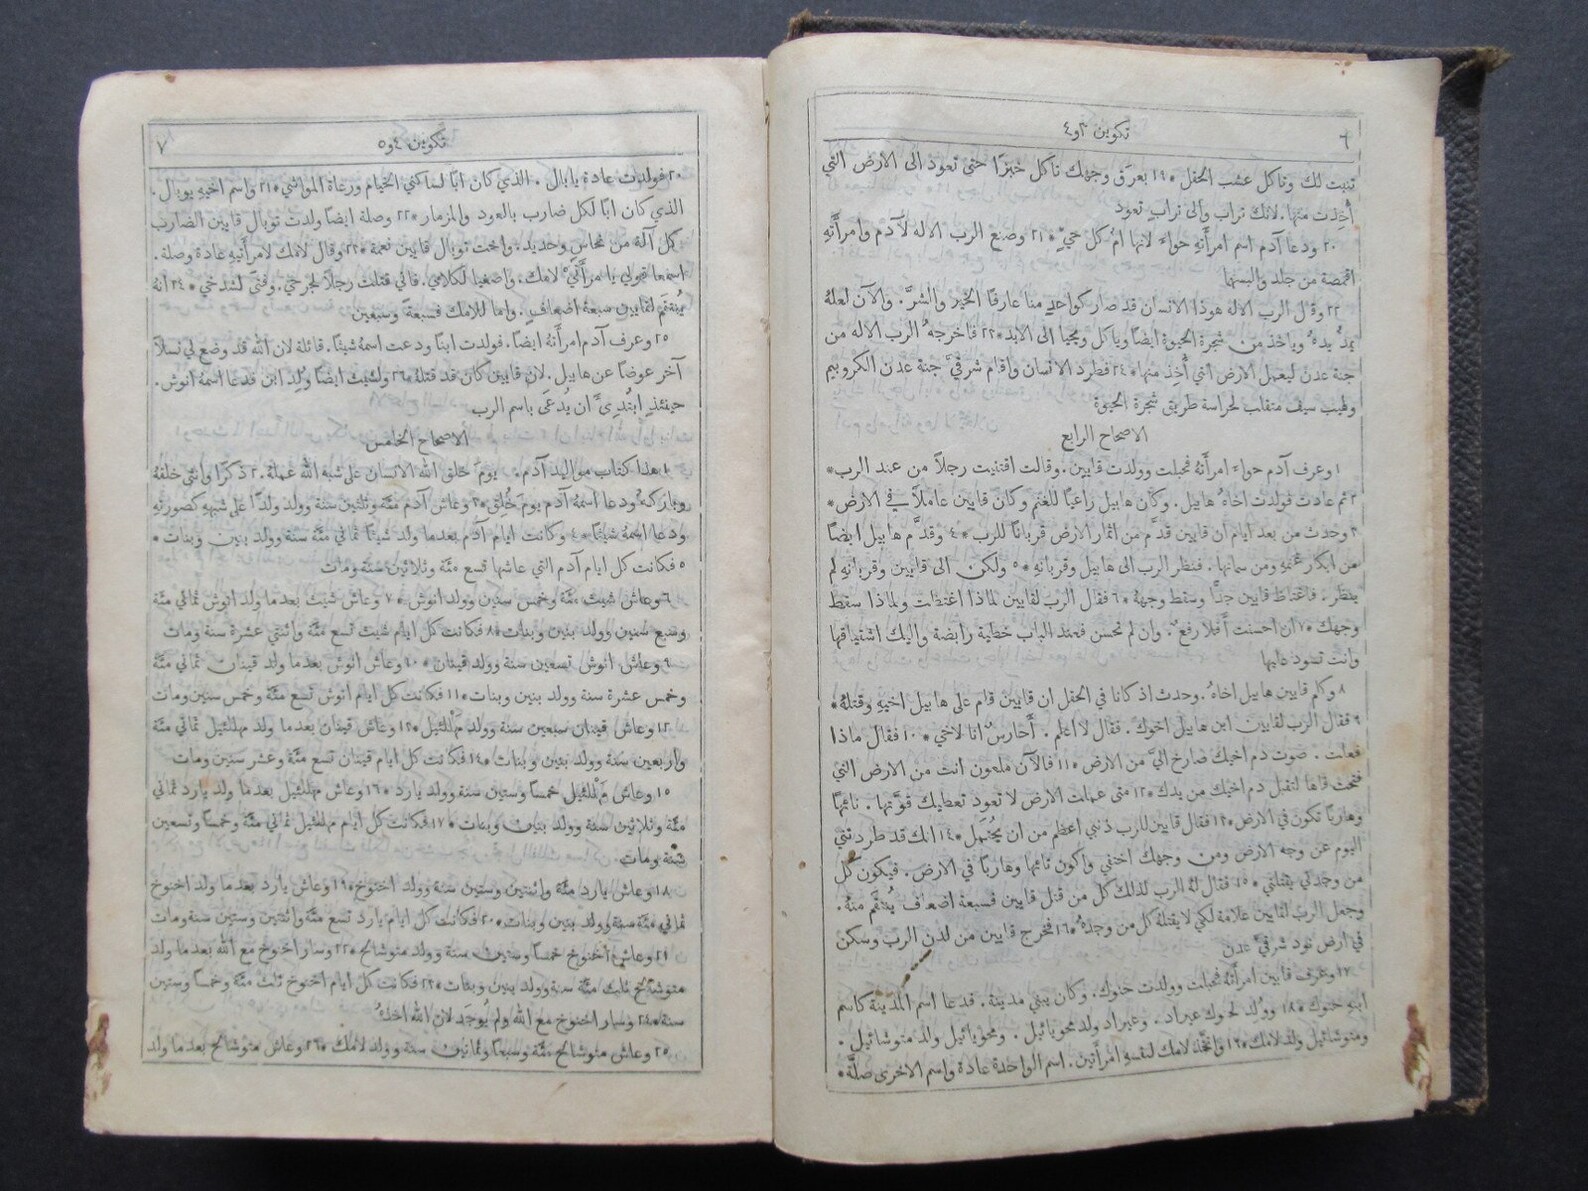 ٦
تكوين ٣ و٤
تنبت لك وتاكل عشب الحقل * ١٩ بعرَق وجهك تاكل خبزًا حتى تعود الى الارض التي
أُخِذت منها. لانك تراب والى ترابٍ تعود
٢٠ ودعا آدم اسم امرأَتهِ حواءَ لانها امّ كل حيٍّ * ٢١ وصنع الرب الاله لآدم وامرأَتهِ
اقمصة من جلد والبسهما
٢٢ وقال الرب الاله هوذا الانسان قد صار كواحدٍ منا عارفًا الخير والشرَّ. والآن لعلهُ
يمدُّ يدهُ وياخذ من شجرة الحيوة ايضًا وياكل ويحيا الى الابد * ٢٣ فاخرجهُ الرب الاله من
جنة عدن ليعمل الارض التي أُخِذ منها * ٢٤ فطرد الانسان واقام شرقيَّ جنة عدن الكروبيم
ولهيب سيف متقلب لحراسة طريق شجرة الحيوة
الاصحاح الرابع
١ وعرف آدم حواءَ امرأَتهُ فحبلت وولدت قايين. وقالت اقتنيت رجلاً من عند الرب *
٢ ثم عادت فولدت اخاهُ هابيل. وكان هابيل راعيًا للغنم وكان قايين عاملاً في الارض *
٣ وحدث من بعد ايام ان قايين قدَّم من اثمار الارض قربانًا للرب * ٤ وقدَّم هابيل ايضًا
من ابكار غنمهِ ومن سمانها. فنظر الرب الى هابيل وقربانهِ * ٥ ولكن الى قايين وقربانهِ لم
ينظر. فاغتاظ قايين جدًّا وسقط وجههُ * ٦ فقال الرب لقايين لماذا اغتظت ولماذا سقط
وجهك * ٧ ان احسنت أَفلا رفعٌ. وان لم تحسن فعند الباب خطية رابضة واليك اشتياقها
وانت تسود عليها
٨ وكلم قايين هابيل اخاهُ. وحدث اذ كانا في الحقل ان قايين قام على هابيل اخيهِ وقتلهُ *
٩ فقال الرب لقايين اين هابيل اخوك. فقال لا اعلم. أَحارسٌ انا لاخي * ١٠ فقال ماذا
فعلت. صوت دم اخيك صارخ اليَّ من الارض * ١١ فالآن ملعون انت من الارض التي
فتحت فاها لتقبل دم اخيك من يدك * ١٢ متى عملت الارض لا تعود تعطيك قوَّتها. تائهًا
وهاربًا تكون في الارض * ١٣ فقال قايين للرب ذنبي اعظم من ان يُحتمَل * ١٤ انك قد طردتني
اليوم عن وجه الارض ومن وجهك اختفي واكون تائهًا وهاربًا في الارض. فيكون كل
من وجدني يقتلني * ١٥ فقال لهُ الرب لذلك كل من قتل قايين فسبعة اضعاف يُنتقَم منهُ.
وجعل الرب لقايين علامة لكي لا يقتلهُ كل من وجدهُ * ١٦ فخرج قايين من لدن الرب وسكن
في ارض نود شرقيَّ عدن
١٧ وعرف قايين امرأَتهُ فحبلت وولدت حنوك. وكان يبني مدينة. فدعا اسم المدينة كاسم
ابنهِ حنوك * ١٨ ووُلِد لحنوك عيراد. وعيراد ولد محويائيل. ومحويائيل ولد متوشائيل.
ومتوشائيل ولد لامك * ١٩ واتخذ لامك لنفسهِ امرأَتين. اسم الواحدة عادة واسم الاخرى صلَّة *
تكوين ٤ و٥
٧
٢٠ فولدت عادة يابال. الذي كان ابًا لساكني الخيام ورعاة المواشي * ٢١ واسم اخيهِ يوبال.
الذي كان ابًا لكل ضارب بالعود والمزمار * ٢٢ وصلة ايضًا ولدت توبال قايين الضارب
كل آلة من نحاس وحديد. واخت توبال قايين نعمة * ٢٣ وقال لامك لامرأَتيهِ عادة وصلة.
اسمعا قولي يا امرأَتَيْ لامك. واصغيا لكلامي. فاني قتلت رجلاً لجرحي. وفتى لشدخي * ٢٤ انهُ
يُنتقَم لقايين سبعة اضعافٍ. واما للامك فسبعةً وسبعين
٢٥ وعرف آدم امرأَتهُ ايضًا. فولدت ابنًا ودعت اسمهُ شيثًا. قائلة لان الله قد وضع لي نسلاً
آخر عوضًا عن هابيل. لان قايين كان قد قتلهُ * ٢٦ ولشيث ايضًا وُلِد ابن فدعا اسمهُ انوش.
حينئذٍ ابتُدِئَ ان يُدعَى باسم الرب
الاصحاح الخامس
١ هذا كتاب مواليد آدم. يومَ خلق الله الانسان على شبه الله عملهُ. ٢ ذكرًا وانثى خلقهُ
وباركهُ ودعا اسمهُ آدم يوم خُلِق * ٣ وعاش آدم مئة وثلثين سنة وولد ولدًا على شبههِ كصورتهِ
ودعا اسمهُ شيثًا * ٤ وكانت ايام آدم بعدما ولد شيثًا ثماني مئة سنة وولد بنين وبنات *
٥ فكانت كل ايام آدم التي عاشها تسع مئة وثلاثين سنة ومات
٦ وعاش شيث مئة وخمس سنين وولد انوش * ٧ وعاش شيث بعدما ولد انوش ثماني مئة
وسبع سنين وولد بنين وبنات * ٨ فكانت كل ايام شيث تسع مئة واثنتي عشرة سنة ومات
٩ وعاش انوش تسعين سنة وولد قينان * ١٠ وعاش انوش بعدما ولد قينان ثماني مئة
وخمس عشرة سنة وولد بنين وبنات * ١١ فكانت كل ايام انوش تسع مئة وخمس سنين ومات
١٢ وعاش قينان سبعين سنة وولد مهللئيل * ١٣ وعاش قينان بعدما ولد مهللئيل ثماني مئة
واربعين سنة وولد بنين وبنات * ١٤ فكانت كل ايام قينان تسع مئة وعشر سنين ومات
١٥ وعاش مهللئيل خمسًا وستين سنة وولد يارد * ١٦ وعاش مهللئيل بعدما ولد يارد ثماني
مئة وثلاثين سنة وولد بنين وبنات * ١٧ فكانت كل ايام مهللئيل ثماني مئة وخمسًا وتسعين
سنة ومات
١٨ وعاش يارد مئة واثنتين وستين سنة وولد اخنوخ * ١٩ وعاش يارد بعدما ولد اخنوخ
ثماني مئة سنة وولد بنين وبنات * ٢٠ فكانت كل ايام يارد تسع مئة واثنتين وستين سنة ومات
٢١ وعاش اخنوخ خمسًا وستين سنة وولد متوشالح * ٢٢ وسار اخنوخ مع الله بعدما ولد
متوشالح ثلث مئة سنة وولد بنين وبنات * ٢٣ فكانت كل ايام اخنوخ ثلث مئة وخمسًا وستين
سنة * ٢٤ وسار اخنوخ مع الله ولم يُوجَد لان الله اخذهُ
٢٥ وعاش متوشالح مئة وسبعًا وثمانين سنة وولد لامك * ٢٦ وعاش متوشالح بعدما ولد